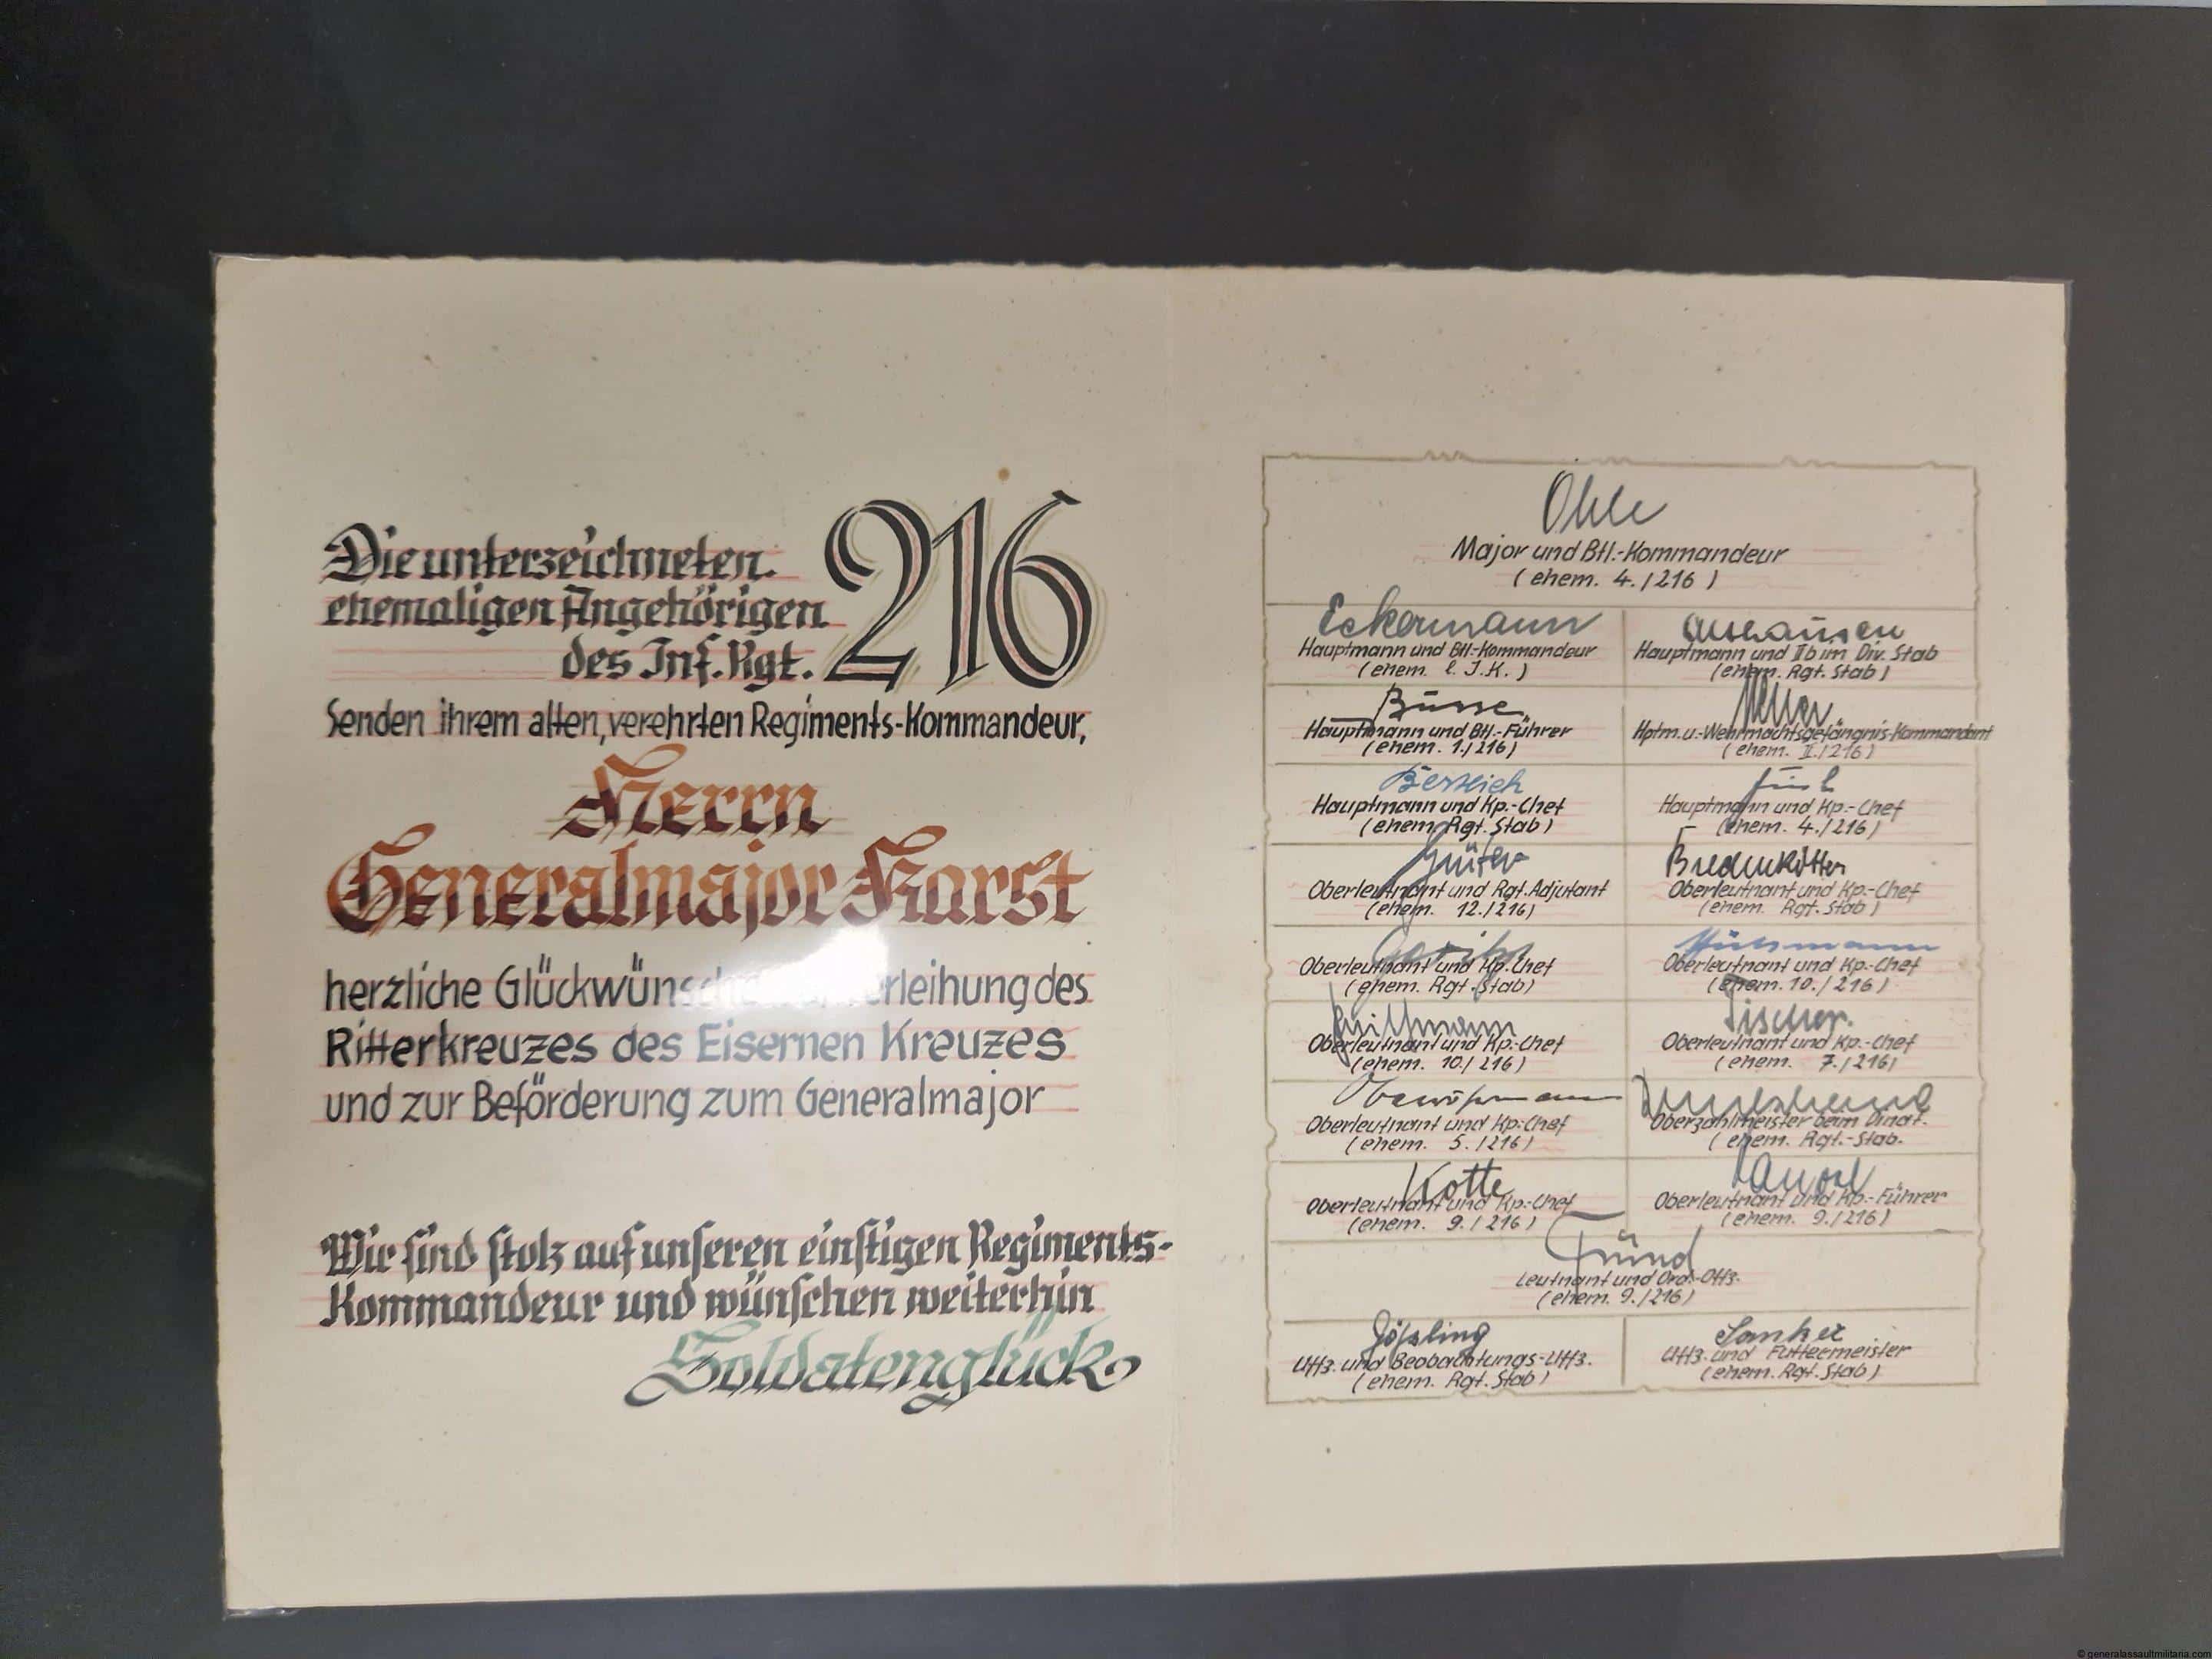 Die unterzeichneten
ehemaligen Angehörigen
des Inf. Rgt. 216
Senden ihrem alten, verehrten Regiments-Kommandeur,
Herrn
Generalmajor Karst
herzliche Glückwünsche erleihung des
Ritterkreuzes des Eisernen Kreuzes
und zur Beförderung zum Generalmajor
Wir sind stolz auf unseren einstigen Regiments-
Kommandeur und wünschen weiterhin
Soldatenglück
Ohle
Major und Btl.-Kommandeur
(ehem. 4./216)
Eckermann
Hauptmann und Btl.-Kommandeur
(ehem. l. J.K.)
Hauptmann und IIb im Div. Stab
(ehem. Rgt. Stab)
Busse
Hauptmann und Btl.-Führer
(ehem. 1./216)
Hptm. u. Wehrmachtsgefängnis-Kommandant
(ehem. II./216)
Hauptmann und Kp.-Chef
(ehem. Rgt. Stab)
Hauptmann und Kp.-Chef
(ehem. 4./216)
Oberleutnant und Rgt. Adjutant
(ehem. 12./216)
Bredenkötter
Oberleutnant und Kp.-Chef
(ehem. Rgt. Stab)
Oberleutnant und Kp. Chef
(ehem. Rgt. Stab)
Oberleutnant und Kp.-Chef
(ehem. 10./216)
Oberleutnant und Kp.-Chef
(ehem. 10./216)
Fischer
Oberleutnant und Kp.-Chef
(ehem. 7./216)
Oberleutnant und Kp.-Chef
(ehem. 5./216)
Oberzahlmeister beim Dinaf.
(ehem. Rgt.-Stab.
Kotte
Oberleutnant und Kp.-Chef
(ehem. 9./216)
Oberleutnant und Kp.-Führer
(ehem. 9./216)
Fründ
Leutnant und Ord.-Offz.
(ehem. 9./216)
Jößling
Uffz. und Beobachtungs-Uffz.
(ehem. Rgt. Stab)
Uffz. und Futtermeister
(ehem. Rgt. Stab)
© generalassaultmilitaria.com